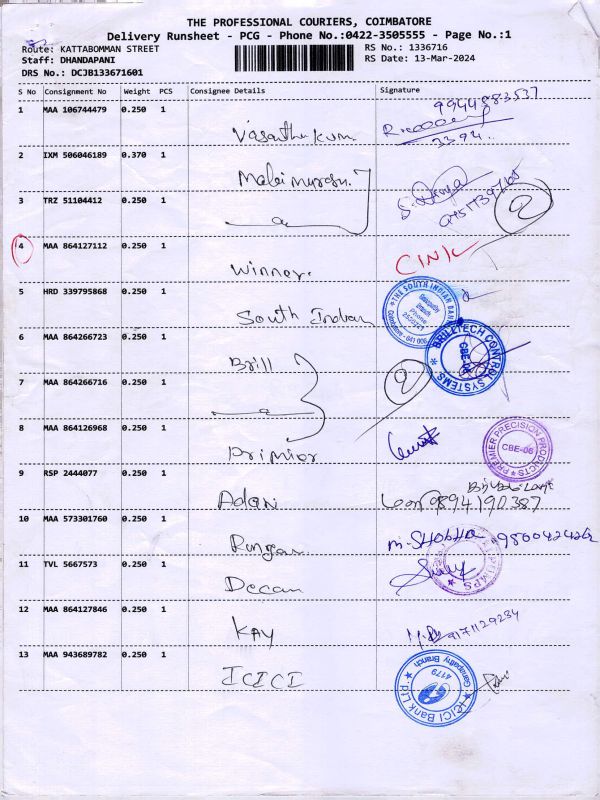 THE PROFESSIONAL COURIERS, COIMBATORE
Delivery Runsheet - PCG - Phone No.:0422-3505555 - Page No.:1
Route: KATTABOMMAN STREET
RS No.: 1336716
Staff: DHANDAPANI
RS Date: 13-Mar-2024
DRS No.: DCJB133671601
S No Consignment No Weight PCS Consignee Details Signature
1 MAA 106744479 0.250 1
9944883537
Vasanthakum
3394
2 IXM 506046189 0.370 1
3 TRZ 51104412 0.250 1
2
4 MAA 864127112 0.250 1
Winner.
5 HRD 339795868 0.250 1
South Indian
THE SOUTH INDIAN BANK
Ganapathy Branch
Phone
6 MAA 864266723 0.250 1
Brill
BRILLTECH CONTROL SYSTEMS
7 MAA 864266716 0.250 1
2
8 MAA 864126968 0.250 1
Primier
PREMIER PRECISION PRODUCTS
CBE-06
9 RSP 2444077 0.250 1
Adani
9894190387
10 MAA 573301760 0.250 1
M. SHOBHA
11 TVL 5667573 0.250 1
Decan
PUMPS
12 MAA 864127846 0.250 1
KAY
9171129234
13 MAA 943689782 0.250 1
ICICI
ICICI Bank Ltd
Ganapathy Branch
4179